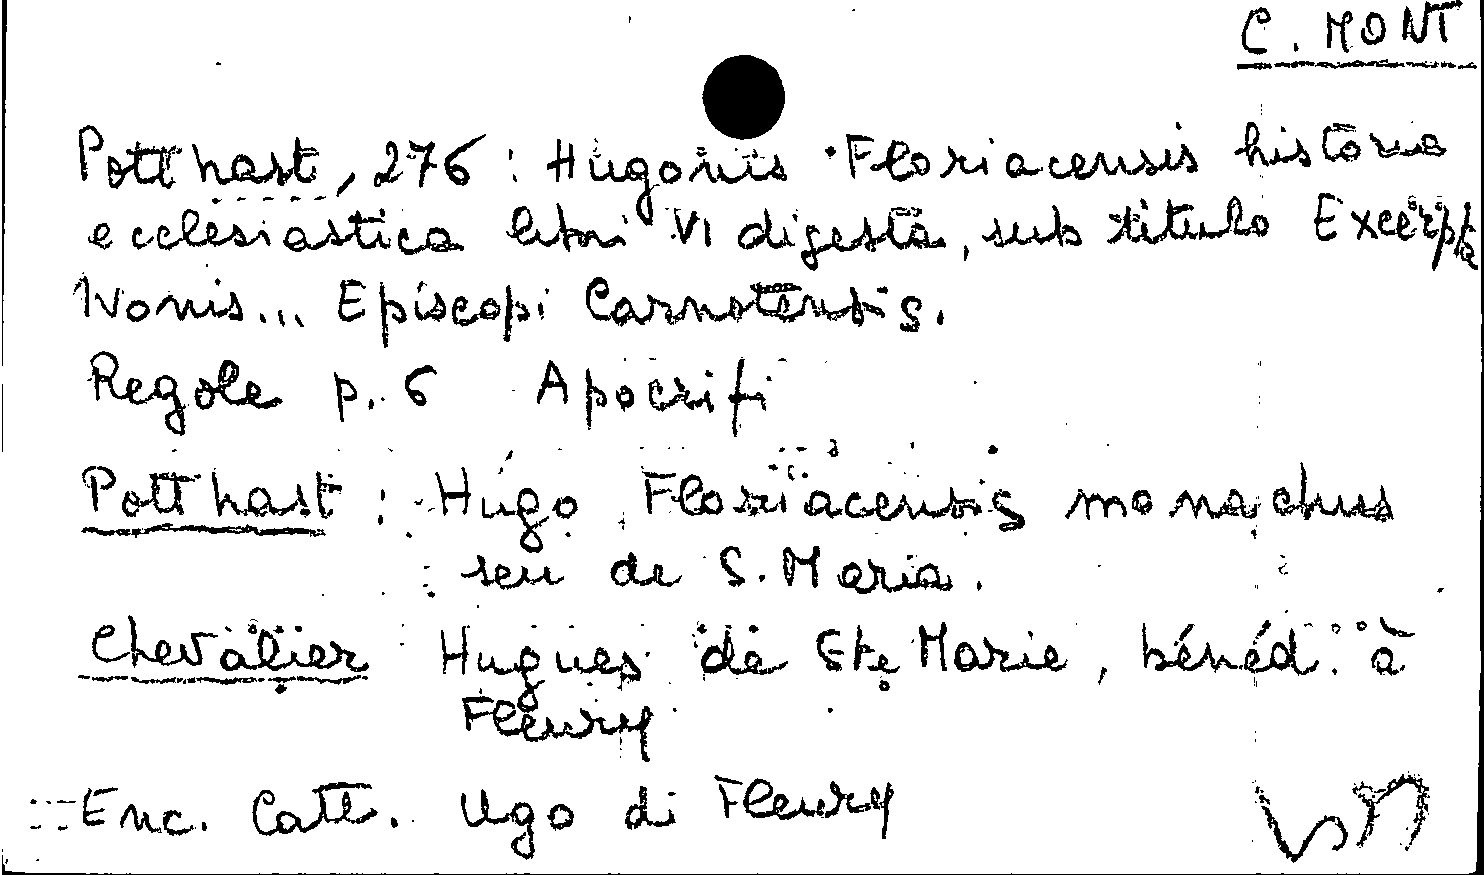 C. MONT
Potthast, 276 : Hugonis Floriacensis historia
ecclesiastica libri VI digesta, sub titulo Excerpta
Ivonis... Episcopi Carnotensis.
Regole p. 6 Apocrifi
Potthast : Hugo Floriacensis monachus
seu de S. Maria.
Chevalier Hugues de Ste Marie, bénéd. à
Fleury
Enc. Catt. Ugo di Fleury